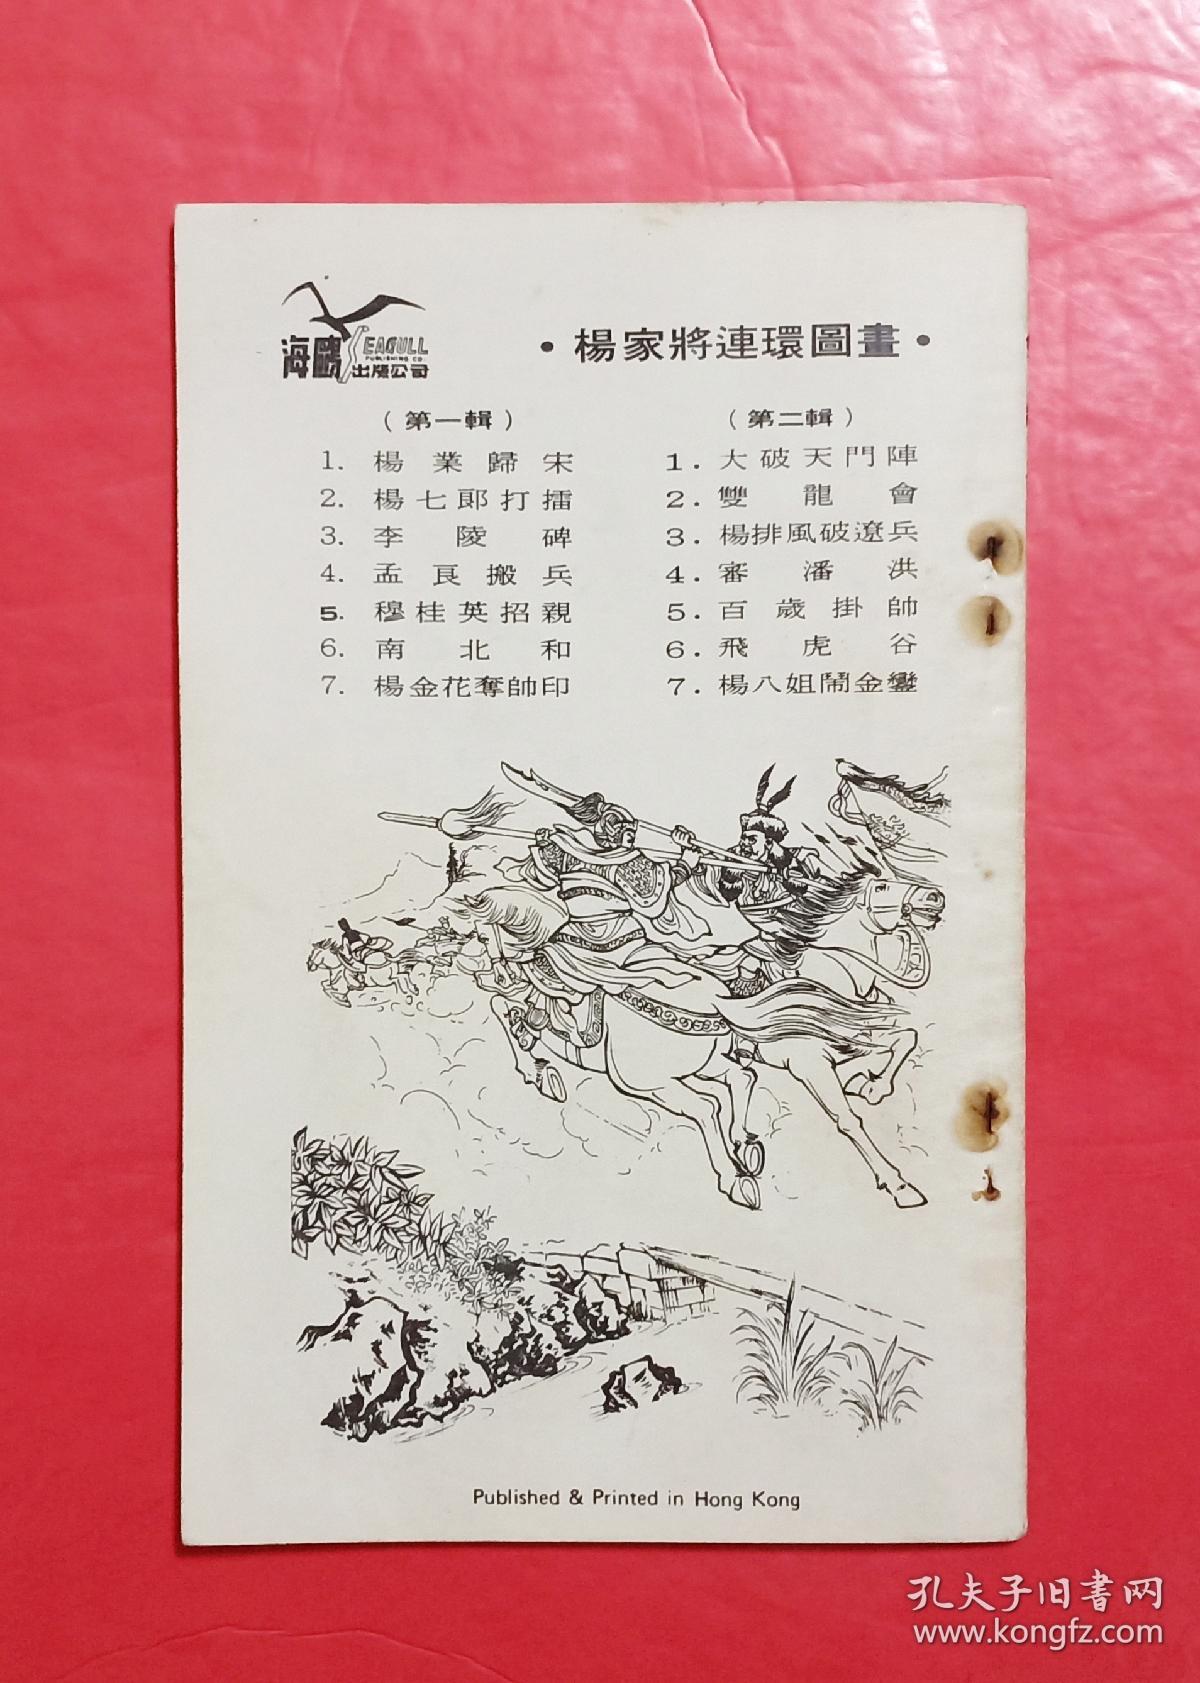 海鷗 SEAGULL
PUBLISHING CO.
出版公司
•楊家將連環圖畫•
(第一輯)
1. 楊業歸宋
2. 楊七郎打擂
3. 李陵碑
4. 孟良搬兵
5. 穆桂英招親
6. 南北和
7. 楊金花奪帥印
(第二輯)
1. 大破天門陣
2. 雙龍會
3. 楊排風破遼兵
4. 審潘洪
5. 百歲掛帥
6. 飛虎谷
7. 楊八姐鬧金鑾
Published & Printed in Hong Kong
孔夫子旧书网
www.kongfz.com